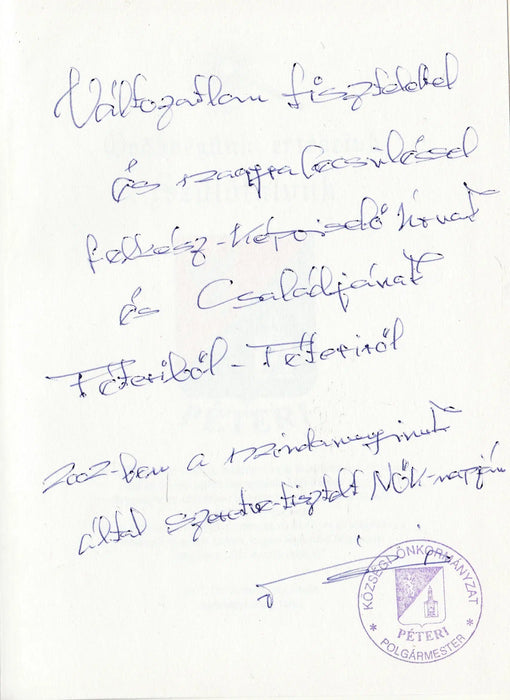 Változatlan tisztelettel
és nagyrabecsüléssel
Lelkész-Képviselő Úrnak
és Családjának
Péteriből - Péteriről
2002-ben a mindannyiunk
által szeretve-tisztelt NŐK-napján
KÖZSÉGI ÖNKORMÁNYZAT
PÉTERI
* POLGÁRMESTER *
PÉTERI